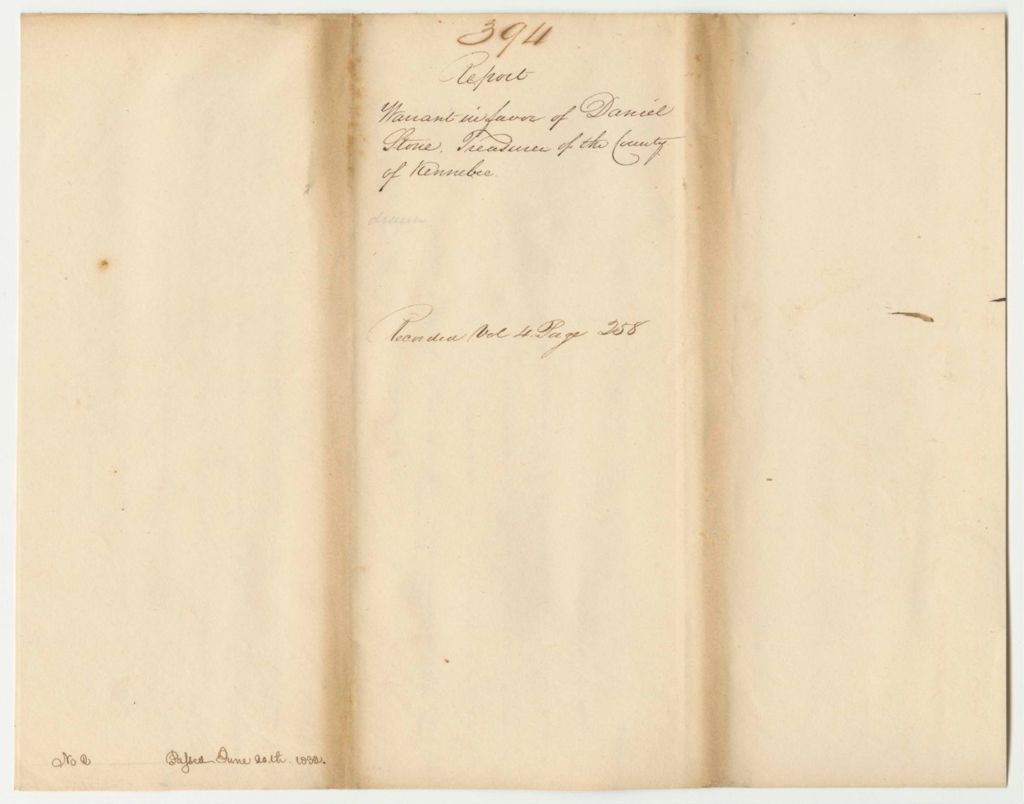 394
Report
Warrant in favor of Daniel
Stone, Treasurer of the County
of Kennebec.
drawn
Recorded Vol 4 Page 258
No 2 Passed June 20th. 1832.